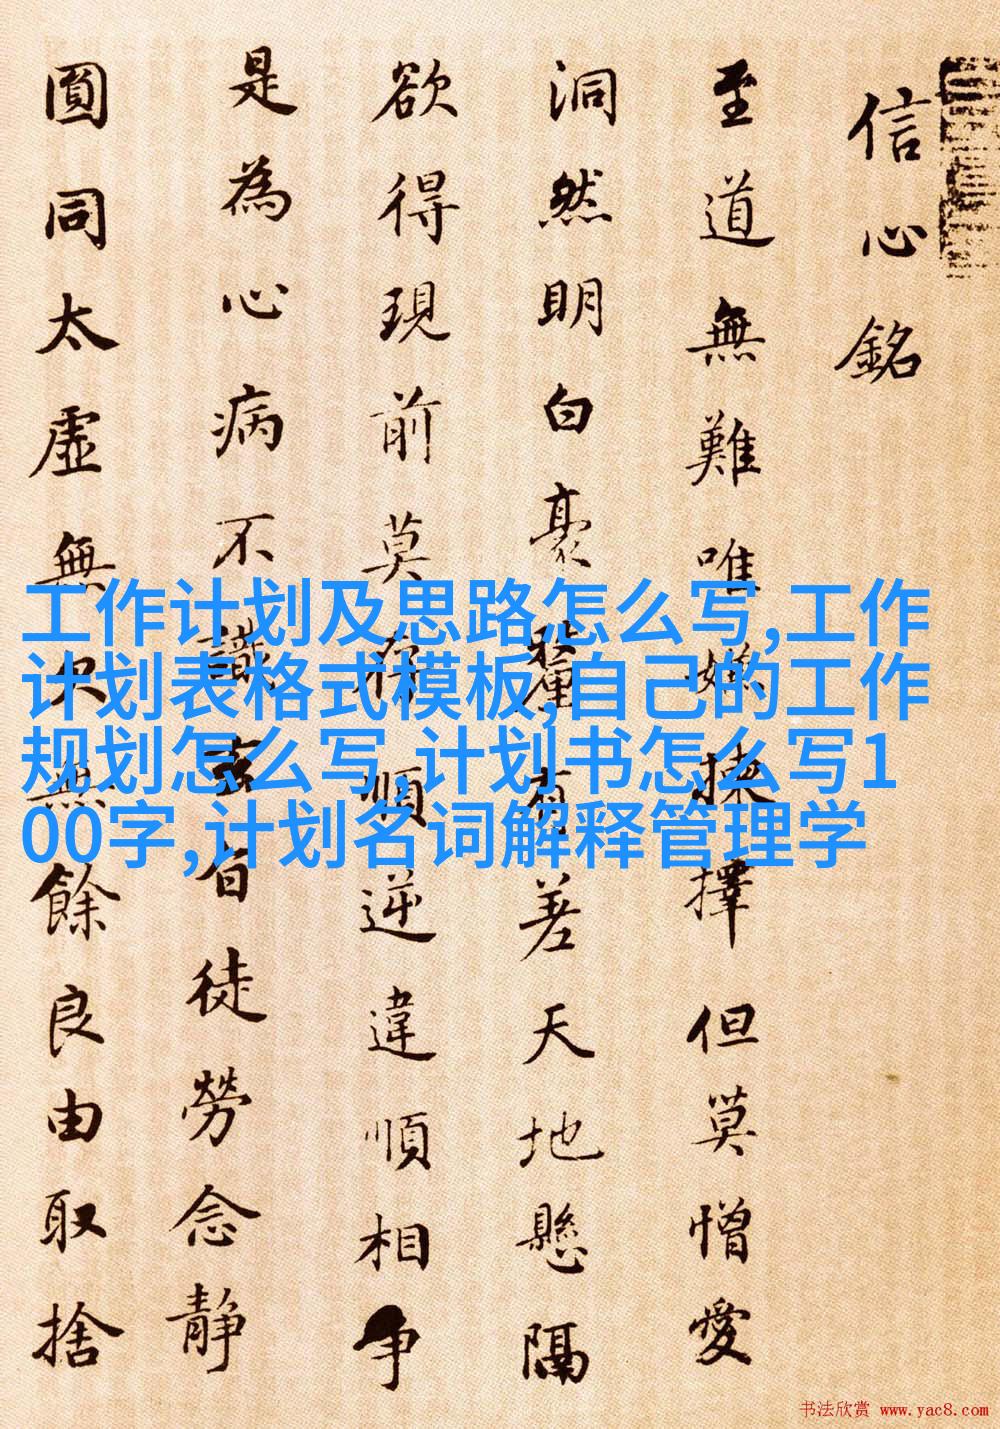 信心銘
至道無難唯嫌揀擇但莫憎愛
洞然明白豪釐有差天地懸隔
欲得現前莫存順逆違順相争
是為心病不識玄旨徒勞念静
圓同太虛無欠無餘良由取捨
工作计划及思路怎么写,工作
计划表格式模板,自己的工作
规划怎么写,计划书怎么写1
00字,计划名词解释管理学
书法欣赏 www.yac8.com